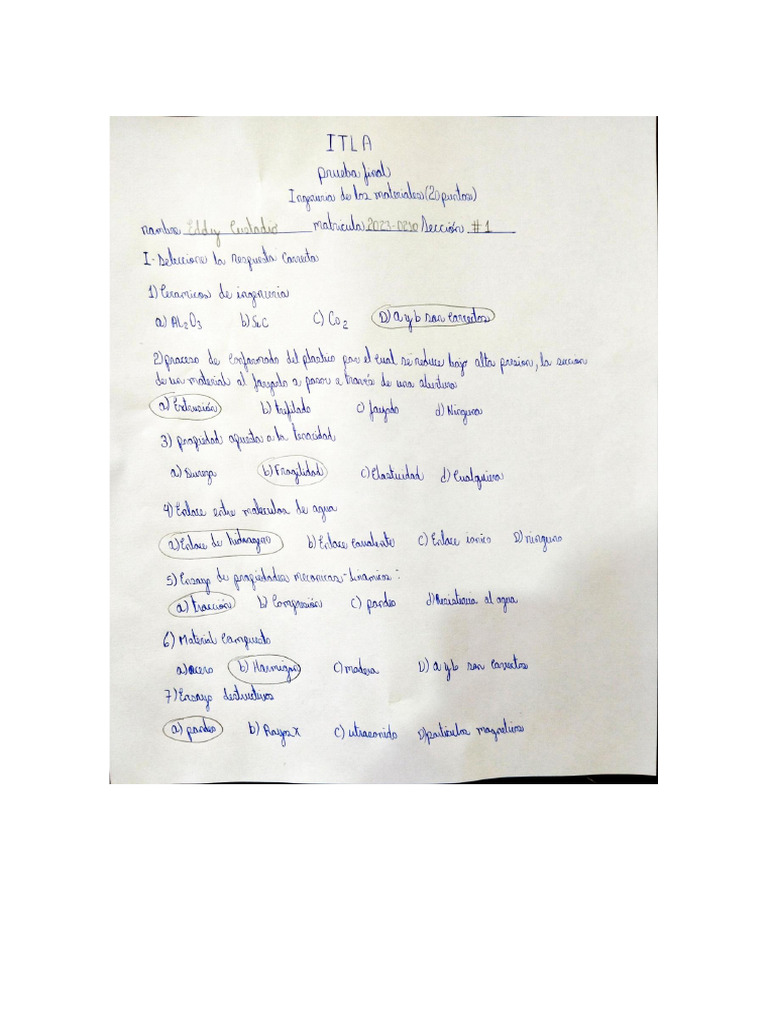 ITLA
prueba final
Ingenieria de los materiales (20 puntos)
nombre Eddy Custodio matricula 2023-0230 Sección #1
I- Seleccione la respuesta correcta
1) Ceramicos de ingenieria
a) Al2O3 b) SiC c) Co2 D) a y b son correctos
2) proceso de conformado del plastico por el cual se reduce bajo alta presion, la seccion
de un material al forzarlo a pasar a través de una abertura
a) Extrusión b) trefilado c) forjado d) Ninguna
3) propiedad opuesta a la tenacidad
a) Dureza b) Fragilidad c) Elasticidad d) Cualquiera
4) Enlace entre moleculas de agua
a) Enlace de hidrogeno b) Enlace covalente c) Enlace ionico D) ninguno
5) Ensayo de propiedades mecanicas-dinamicas:
a) tracción b) Compresión c) pandeo d) Resistencia al agua
6) Material Compuesto
a) acero b) Hormigon c) madera D) a y b son correctos
7) Ensayo destructivos
a) pandeo b) Rayos x c) utrasonido D) particulas magneticas